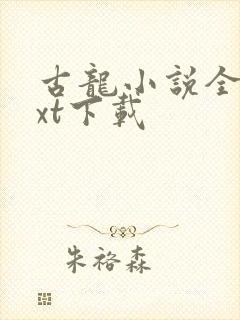 古龍小説全
xt下載
朱裕森